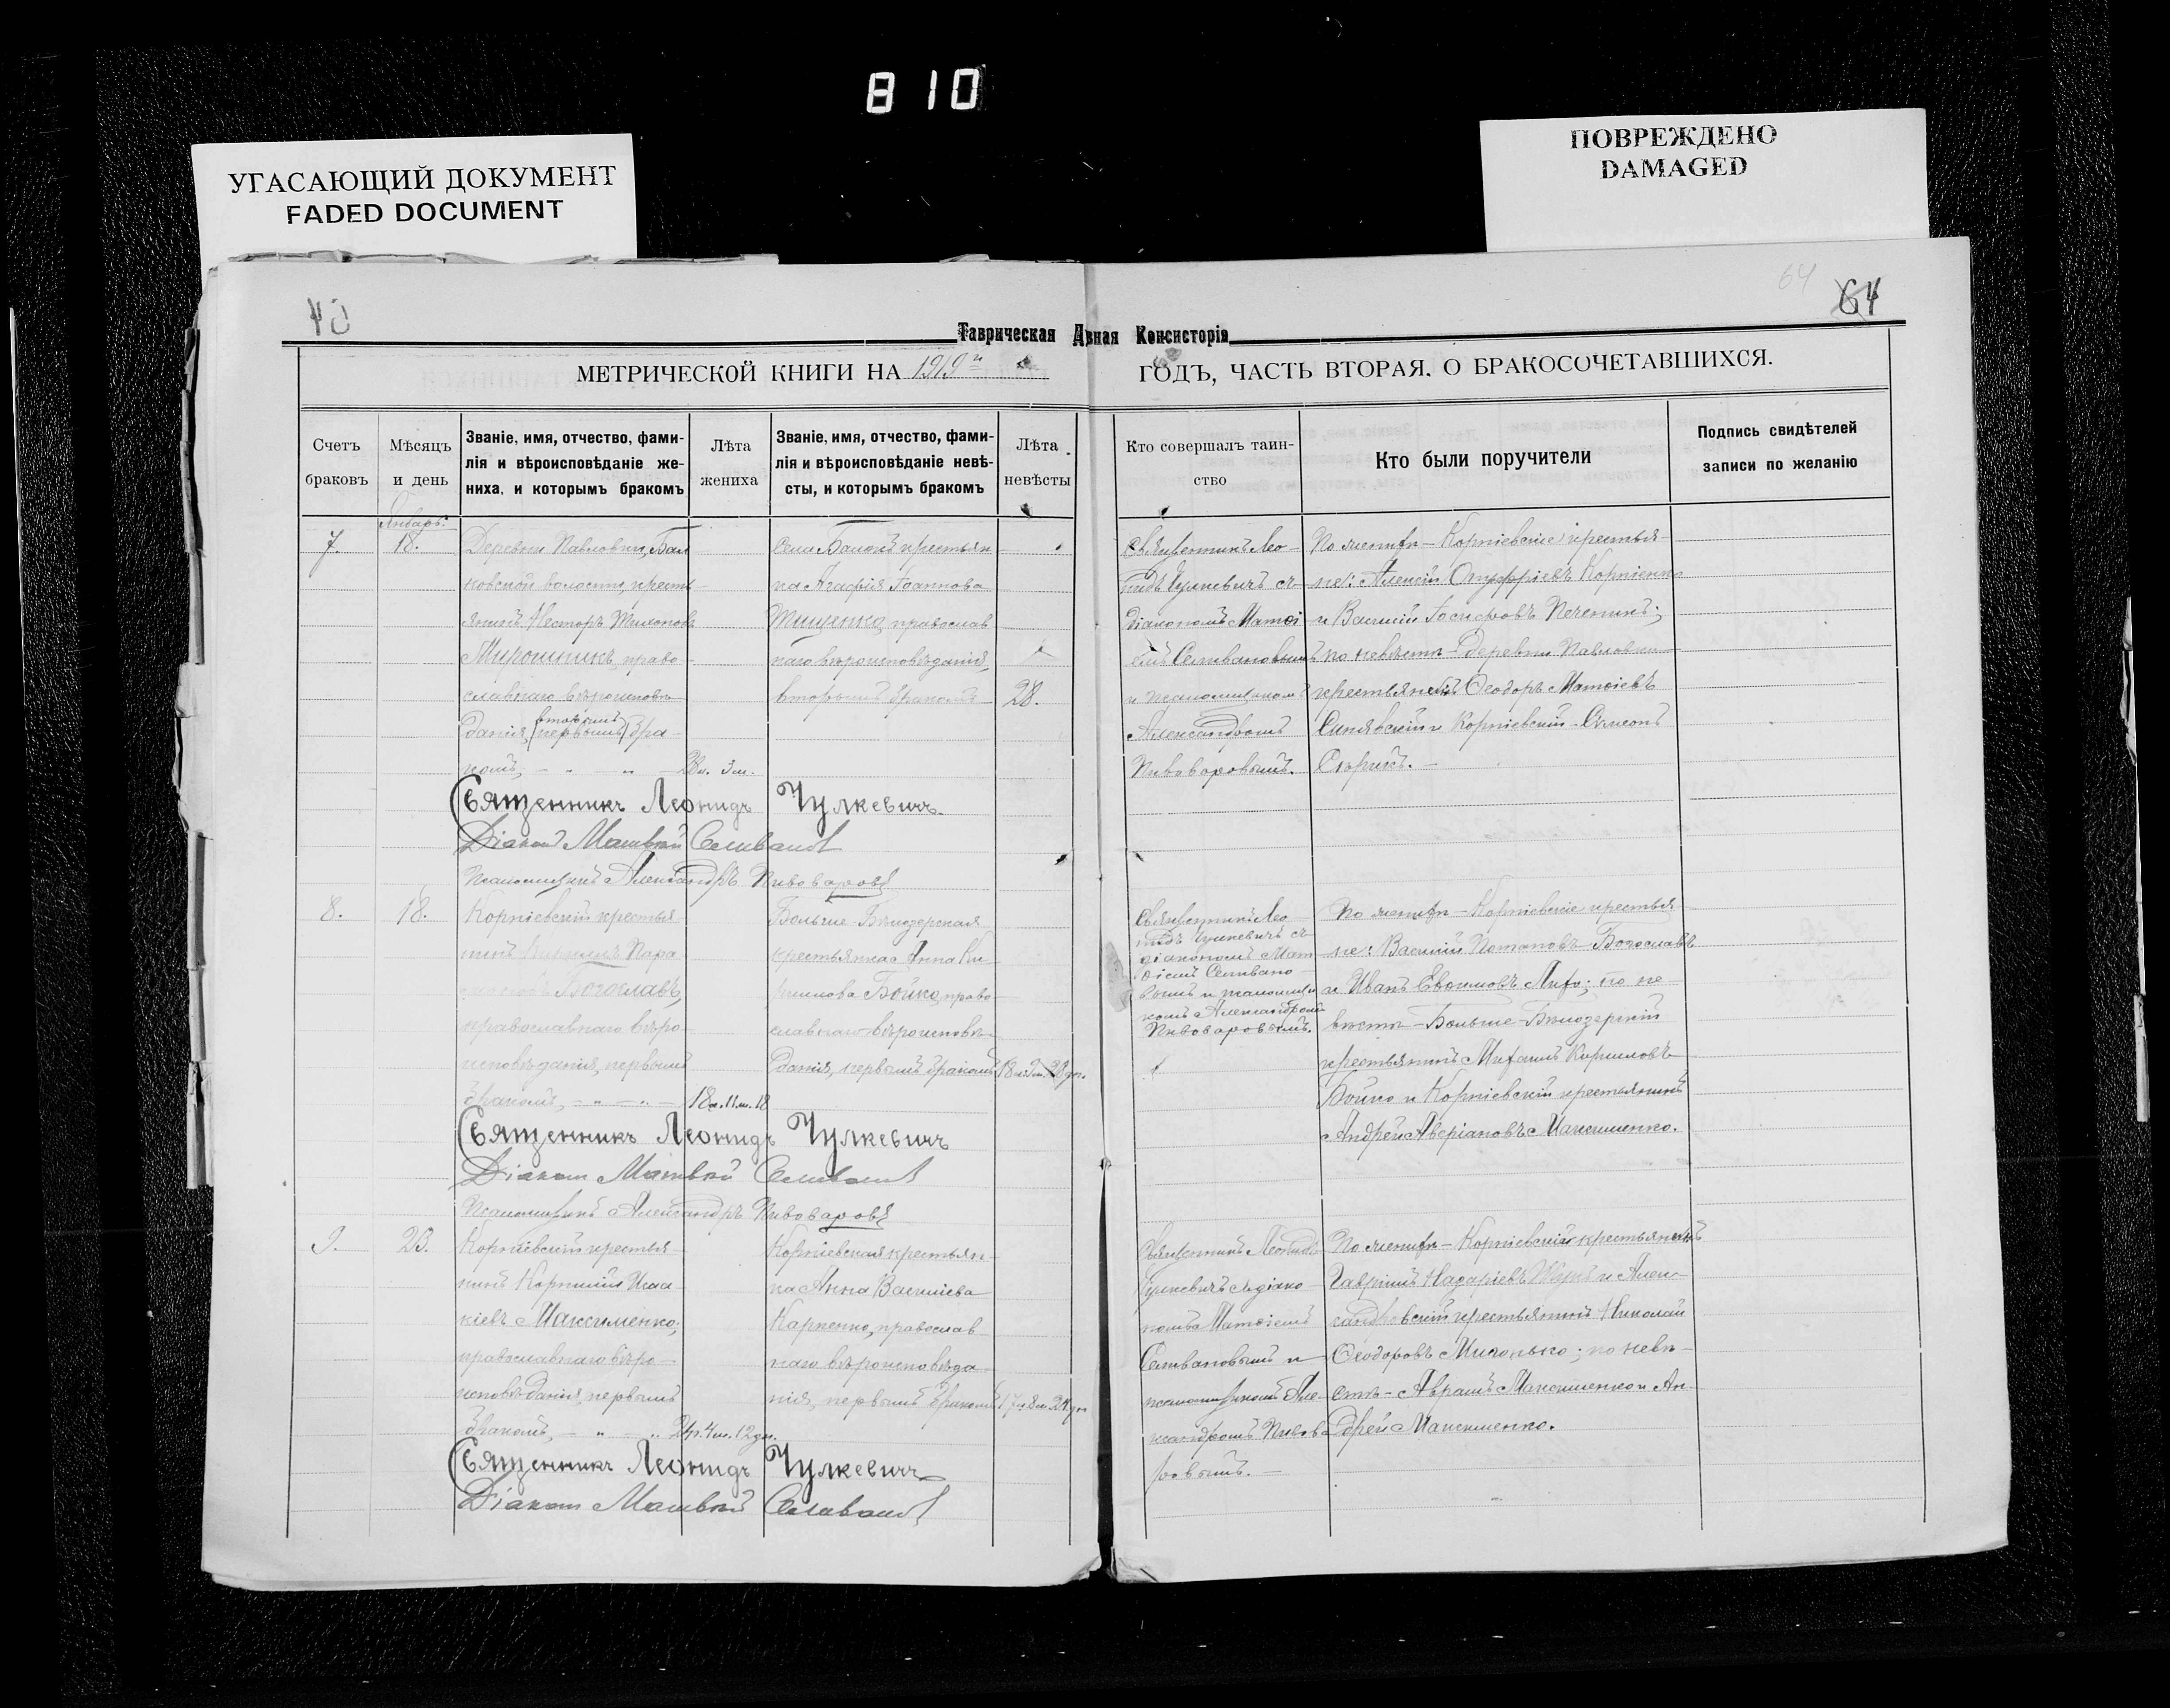 810
УГАСАЮЩИЙ ДОКУМЕНТ
FADED DOCUMENT
ПОВРЕЖДЕНО
DAMAGED
40
64
64
Таврическая Д вная Консисторія
МЕТРИЧЕСКОЙ КНИГИ НА 1919й ГОДЪ, ЧАСТЬ ВТОРАЯ, О БРАКОСОЧЕТАВШИХСЯ.
Счетъ
браковъ
Мѣсяцъ
и день
Званіе, имя, отчество, фами-
лія и вѣроисповѣданіе же-
ниха, и которымъ бракомъ
Лѣта
жениха
Званіе, имя, отчество, фами-
лія и вѣроисповѣданіе невѣ-
сты, и которымъ бракомъ
Лѣта
невѣсты
Кто совершалъ таин-
ство
Кто были поручители
Подпись свидѣтелей
записи по желанію
Январь.
7.
18.
Деревни Павловки, Бал
ковской волости, кресть
янинъ Несторъ Тихоновъ
Мирошникъ, право-
славнаго вѣроисповѣ-
данія, (первымъ) вторымъ бра-
комъ,
28л. 3м.
Села Балокъ крестьян
ка Агафія Іоаннова
Тищенко, православ
наго вѣроисповѣданія,
вторымъ бракомъ
28.
Священникъ Лео-
нидъ Чулкевичъ съ
діакономъ Матѳі
емъ Селивановымъ
и псаломщикомъ
Александромъ
Пивоваровымъ.
По женихѣ – Корніевскіе крестья-
не: Алексій Онуфріевъ Корніенко
и Василій Іосифовъ Печеникъ;
по невѣстѣ – деревни Павловки
крестьянинъ Ѳеодоръ Матѳіевъ
Синявскій и Корніевскій – Симеонъ
Скрикъ.
Священникъ Леонидъ Чулкевичъ.
Діаконъ Матвѣй Селивановъ
Псаломщикъ Александръ Пивоваровъ
8.
18.
Корніевскій крестья-
нинъ Пара
Богославъ,
православнаго вѣро-
исповѣданія, первымъ
бракомъ,
18л. 11м. 18
Больше-Бѣлозерская
крестьянка Анна Ки-
риллова Бойко, право-
славнаго вѣроисповѣ-
данія, первымъ бракомъ
Священникъ Лео-
нидъ Чулкевичъ съ
діакономъ Мат
ѳіемъ Селивано-
вымъ и псаломщи
комъ Александромъ
Пивоваровымъ.
По женихѣ – Корніевскіе крестья-
не: Василій Потаповъ Богославъ
и Иванъ Евѳимовъ ; по не
вѣстѣ – Больше-Бѣлозерскій
крестьянинъ Михаилъ Кирилловъ
Бойко и Корніевскій крестьянинъ
Андрей Аверіановъ Максименко.
Священникъ Леонидъ Чулкевичъ
Діаконъ Матвѣй Селивановъ
Псаломщикъ Александръ Пивоваровъ
9.
23.
Корніевскій крестья-
нинъ Корнилій Исаа
кіевъ Максименко,
православнаго вѣро-
исповѣданія, первымъ
бракомъ,
4м. 12дн.
Корніевская крестьян-
ка Анна Василіева
Карпенко, православ-
наго вѣроисповѣда
нія, первымъ бракомъ
17л. 8м. 24дн
Священникъ Леонидъ
Чулкевичъ съ діако-
номъ Матѳіемъ
Селивановымъ и
псаломщикомъ Але-
ксандромъ Пивова
ровымъ.
По женихѣ – Корніевскій крестьянинъ
Гавріилъ Назаріевъ и Алек-
сандровскій крестьянинъ Николай
Ѳеодоровъ ; по невѣ-
стѣ – Аврамъ Максименко и Ан-
дрей Максименко.
Священникъ Леонидъ Чулкевичъ
Діаконъ Матвѣй Селивановъ